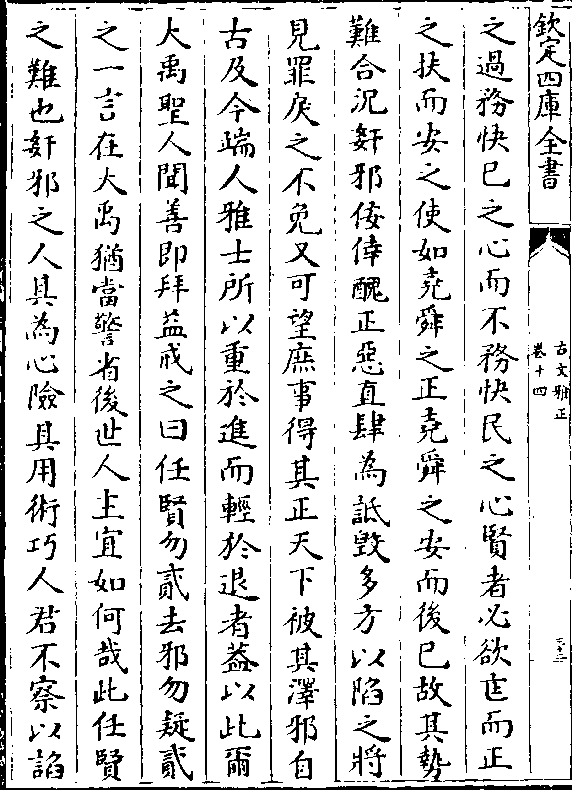 欽定四庫全書
古文雅正
卷十四
三十三
之過務快已之心而不務快民之心賢者必欲匡而正
之扶而安之使如堯舜之正堯舜之安而後已故其勢
難合況奸邪佞倖醜正惡直肆為詆毀多方以陷之將
見罪戾之不免又可望庶事得其正天下被其澤邪自
古及今端人雅士所以重於進而輕於退者葢以此爾
大禹聖人聞善即拜益戒之曰任賢勿貳去邪勿疑貳
之一言在大禹猶當警省後世人主宜如何哉此任賢
之難也奸邪之人其為心險其用術巧人君不察以諂